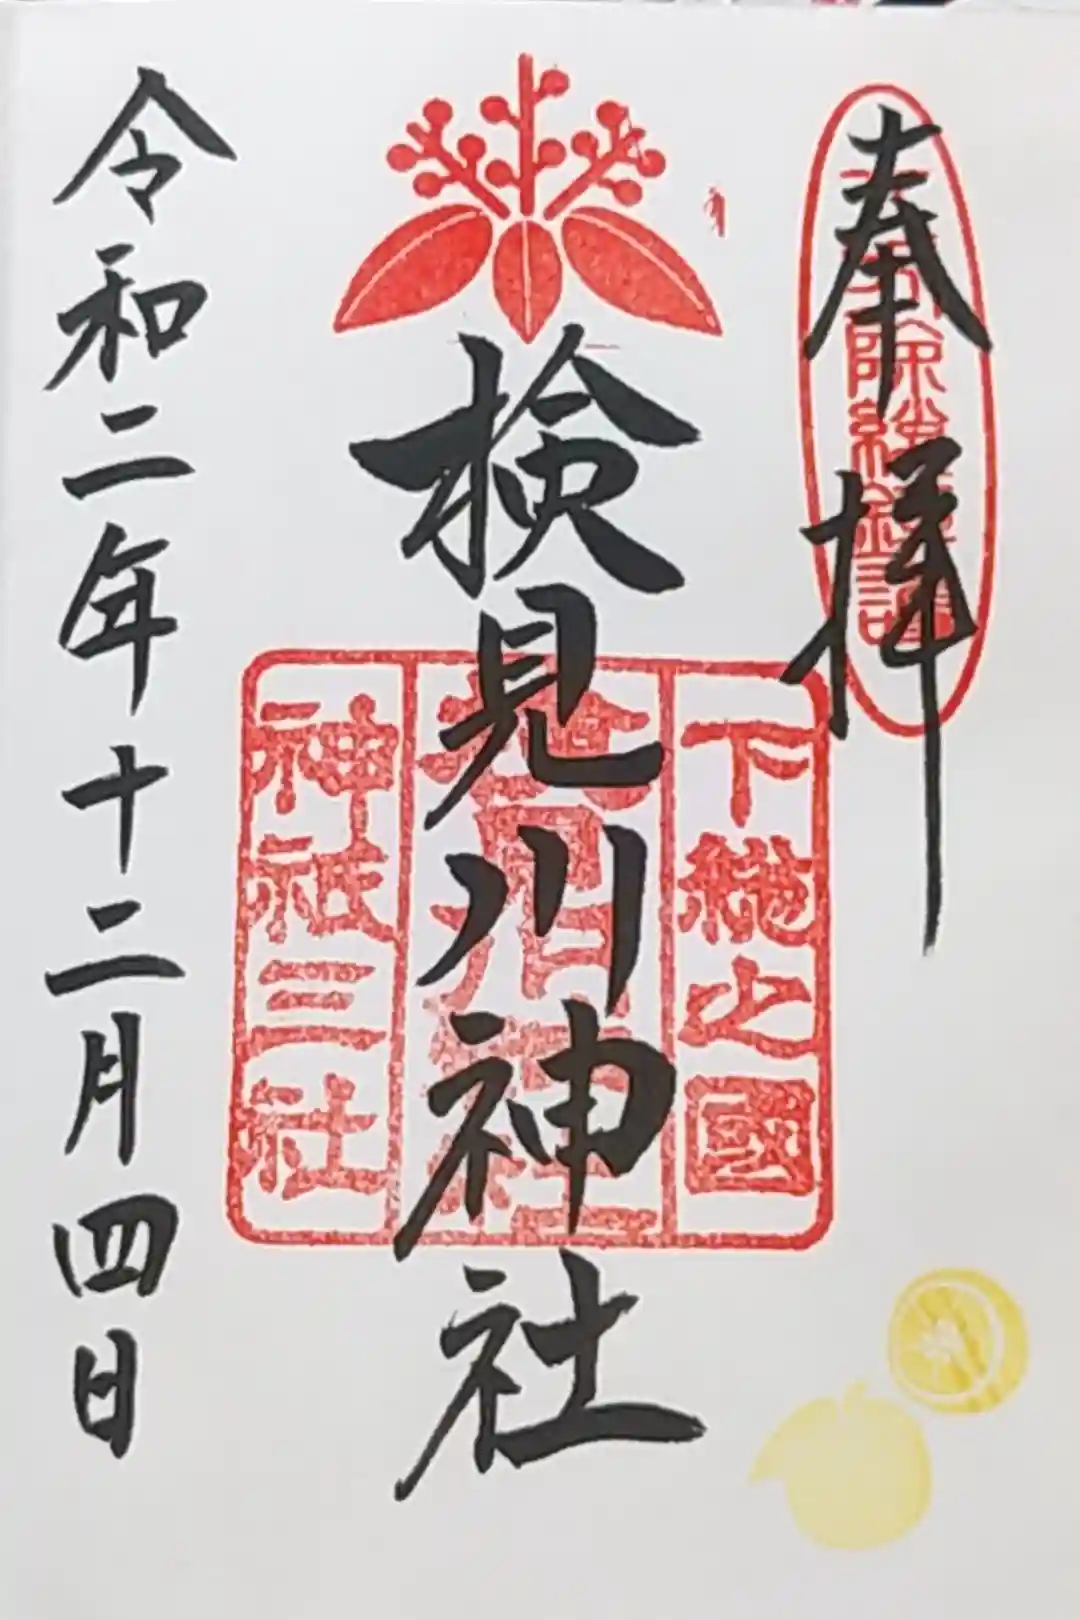 奉拝
下総之國
検見川神社
検見川神社
神祇三社
令和二年十二月四日